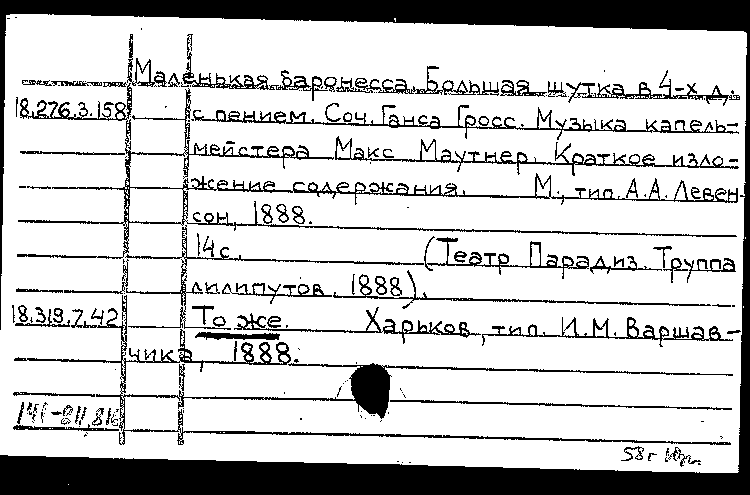 Маленькая баронесса. Большая шутка в 4-х д.
18.276.3.158. с пением. Соч. Ганса Гросс. Музыка капель-
мейстера Макс Маутнер. Краткое изло-
жение содержания. М., тип. А.А. Левен-
сон, 1888.
14 с. (Театр Парадиз. Труппа
лилипутов. 1888).
18.319.7.42 То же. Харьков, тип. И.М. Варшав-
чика, 1888.
141-811,816
58 г